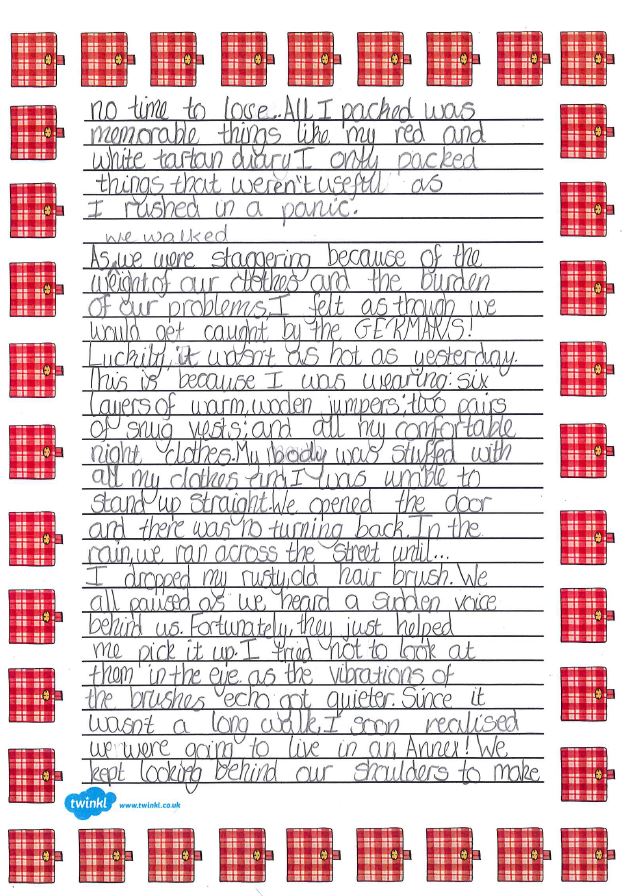 no time to lose..All I packed was
memorable things like my red and
white tartan diary.I only packed
things that weren't useful as
I rushed in a panic.
we walked
As we were staggering because of the
weight of our clothes and the burden
of our problems,I felt as though we
would get caught by the GERMANS!
Luckily, it wasn't as hot as yesterday.
This is because I was wearing: six
layers of warm, woolen jumpers; two pairs
of snug vests; and all my comfortable
night clothes.My body was stuffed with
all my clothes and I was unable to
stand up straight.We opened the door
and there was no turning back.In the
rain,we ran across the street until...
I dropped my rusty,old hair brush. We
all paused as we heard a sudden voice
behind us. Fortunately, they just helped
me pick it up. I tried not to look at
them in the eye as the vibrations of
the brushes echo got quieter. Since it
wasnt a long walk,I soon realised
we were going to live in an Annex! We
kept looking behind our shoulders to make
twinkl www.twinkl.co.uk